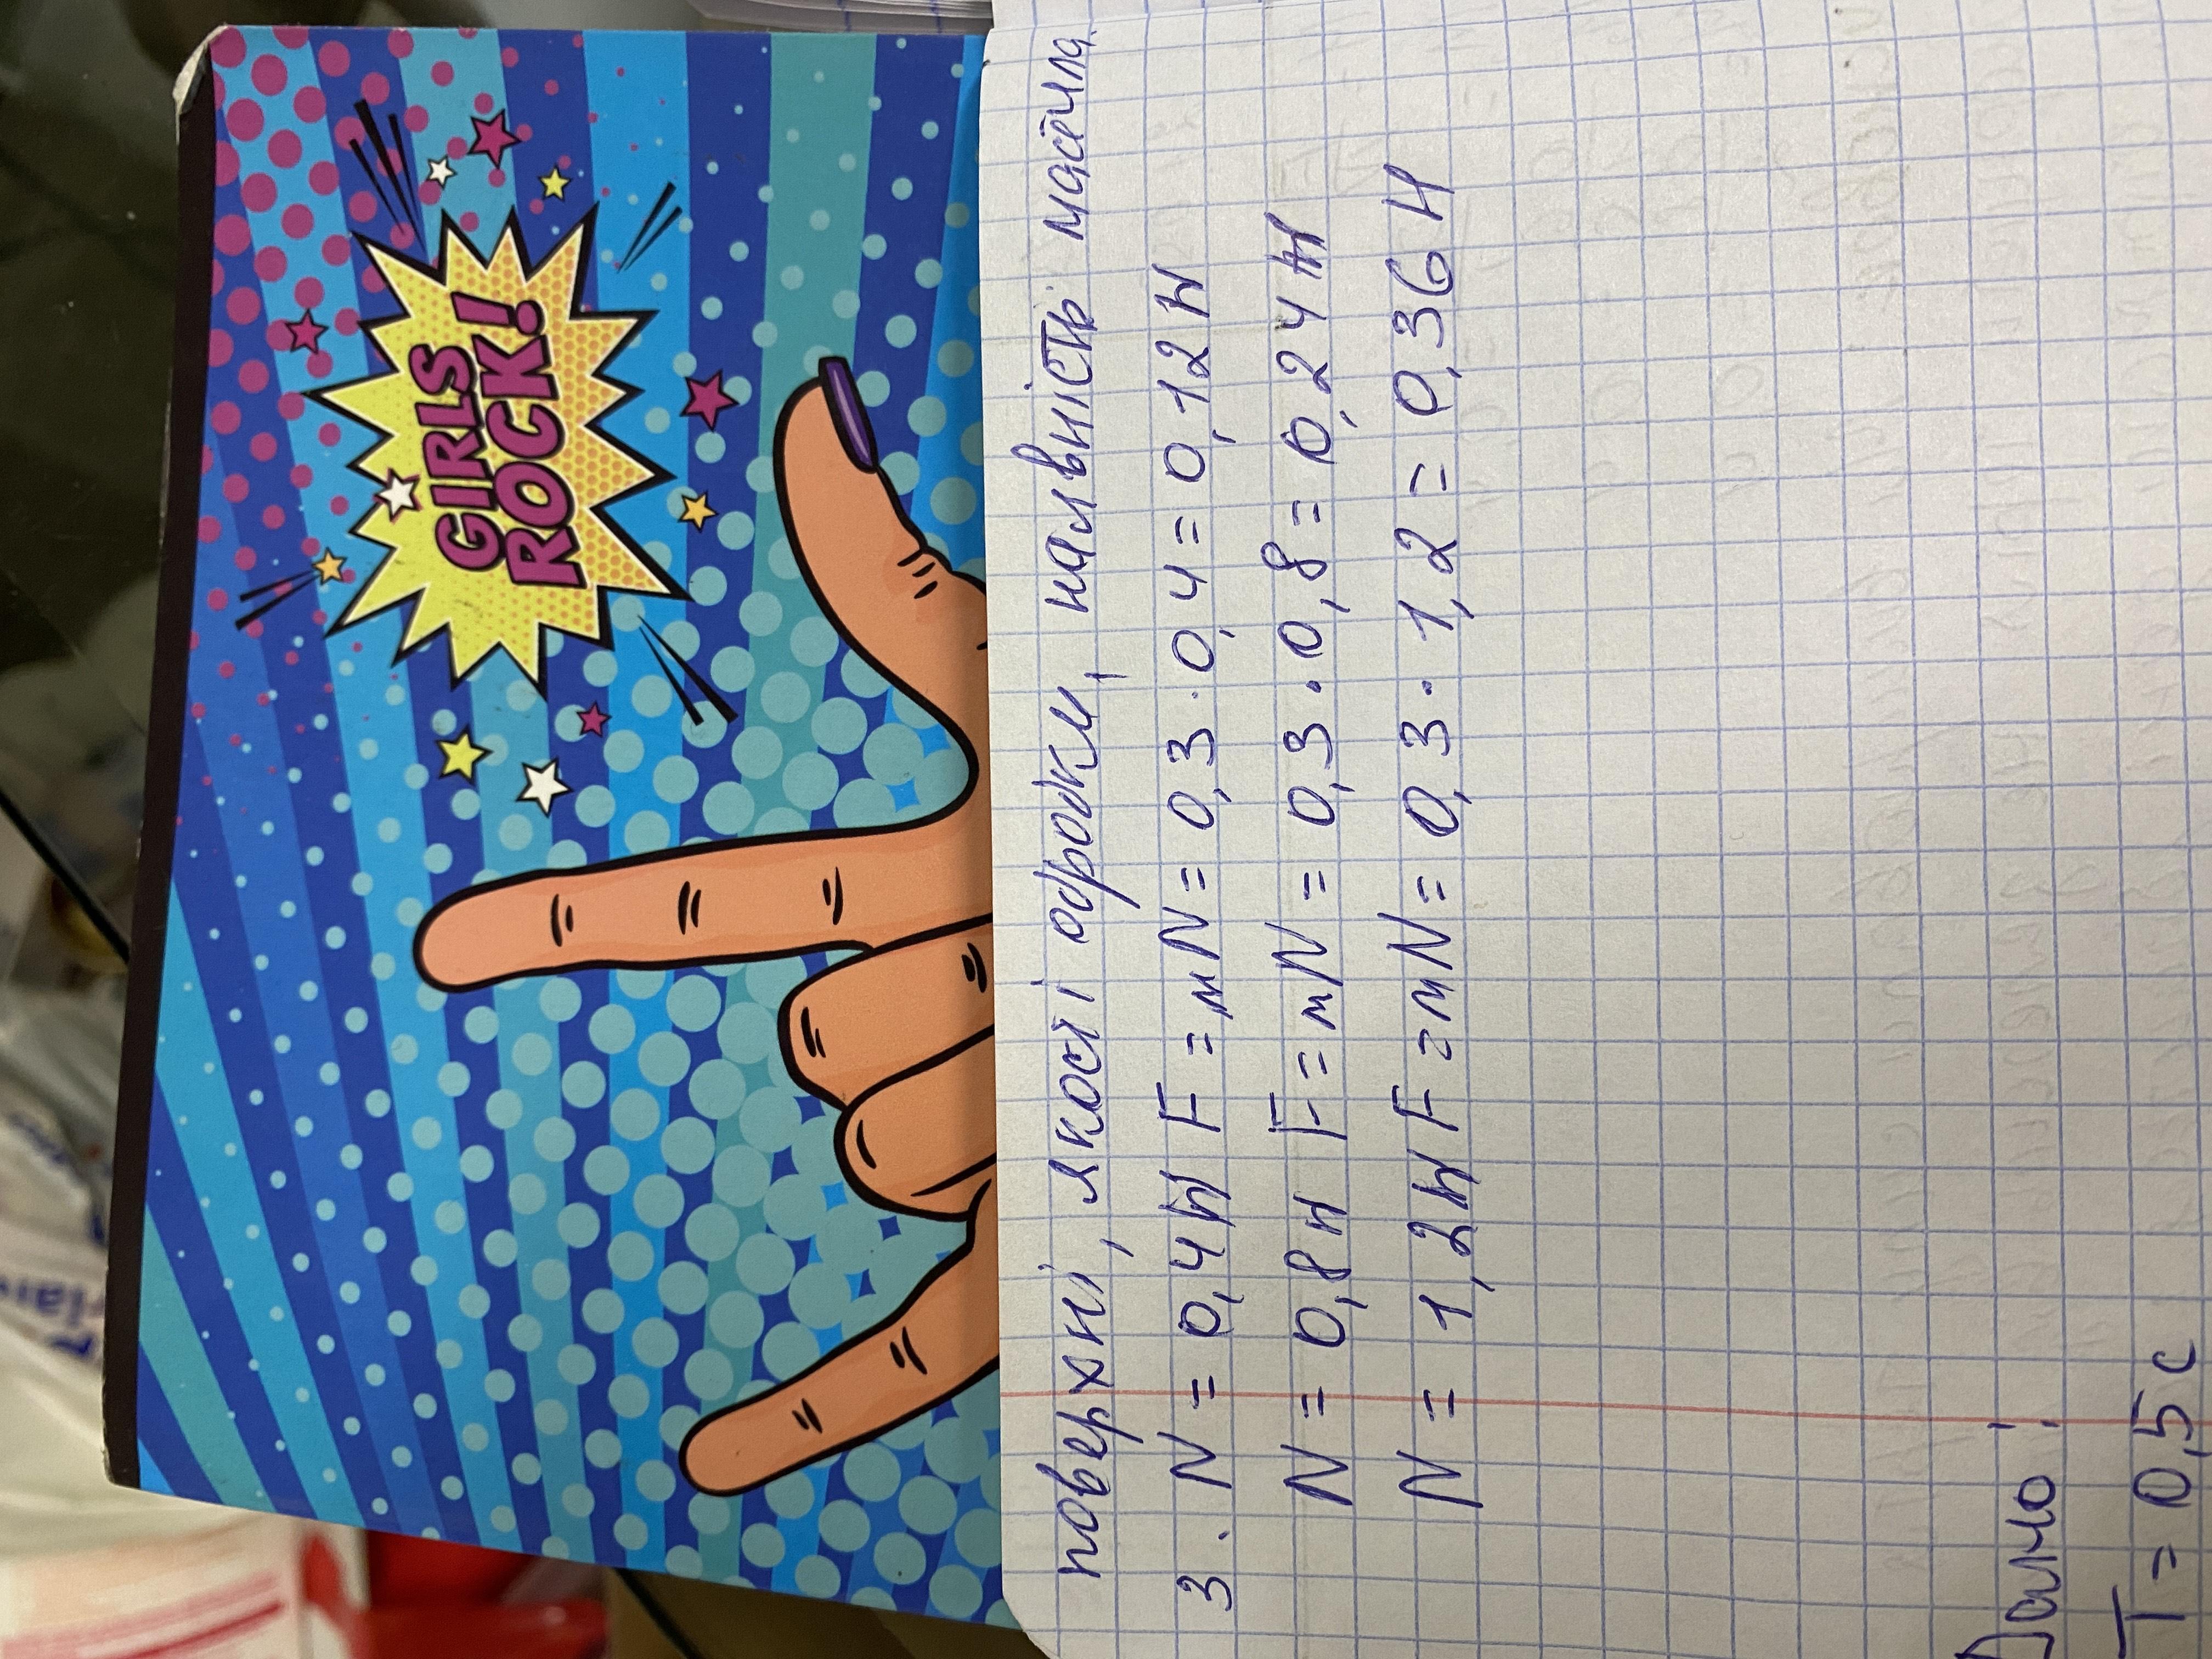 GIRLS
ROCK!
поверхні, якості обробки, наявність мастила.
3. N = 0,4 Н F = мN = 0,3 · 0,4 = 0,12 Н
N = 0,8 Н F = мN = 0,3 · 0,8 = 0,24 Н
N = 1,2 Н F = мN = 0,3 · 1,2 = 0,36 Н
Дано:
T = 0,5 с